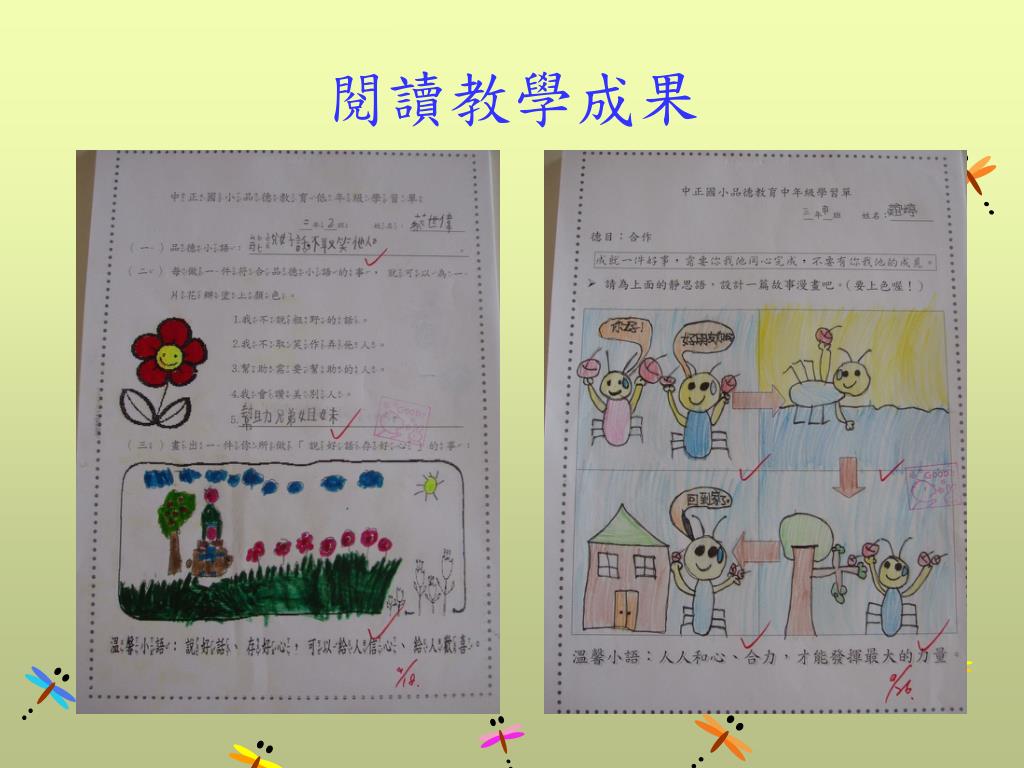 閱讀教學成果
中正國小品德教育低年級學習單
二年2班 姓名：蔡世偉
（一）品德小語：
（二）每做一件符合品德小語的事，就可以為一
片花瓣塗上顏色。
1.我不說粗野的話。
2.我不取笑作弄他人。
3.幫助需要幫助的人。
4.我會讚美別人。
5.幫助兄弟姐妹
（三）畫出一件你所做「說好話存好心」的事：
溫馨小語：說好話、存好心，可以給人信心、給人歡喜。
中正國小品德教育中年級學習單
三年 班 姓名：
德目：合作
成就一件好事，需要你我他同心完成，不要有你我他的成見。
➢ 請為上面的靜思語，設計一篇故事漫畫吧。(要上色喔！)
你好！
回到家了。
Good
溫馨小語：人人和心、合力，才能發揮最大的力量。